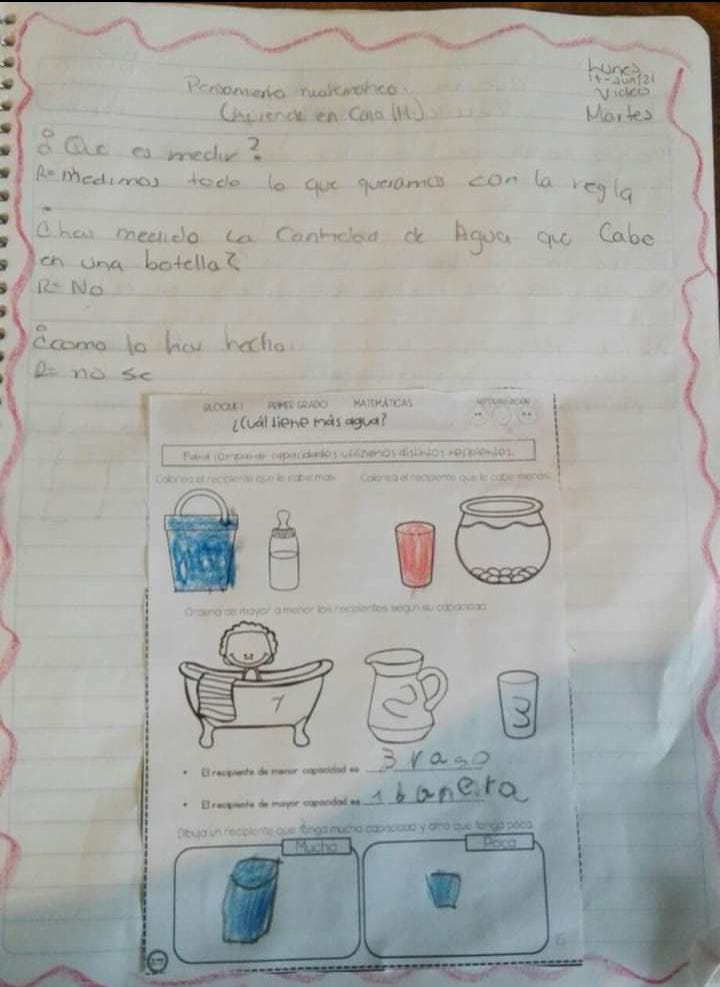 Lunes
14-Jun/21
Video
Pensamiento matematico.
(Aprende en Casa (M)
Martes
¿ Que es medir?
R= medimos todo lo que queramos con la regla
¿has medido la Cantidad de Agua que Cabe
en una botella?
R= No
¿como lo has hecho
R= no se
BLOQUE I PRIMER GRADO MATEMÁTICAS
¿Cuál tiene más agua?
Para comparar capacidades utilizamos distintos recipientes.
Colorea el recipiente que le cabe más.
Colorea el recipiente que le cabe menos.
Ordena de mayor a menor los recipientes según su capacidad.
1
2
3
• El recipiente de menor capacidad es 3 vaso
• El recipiente de mayor capacidad es 1 bañera
Dibuja un recipiente que tenga mucha capacidad y otro que tenga poca.
Mucha
Poca